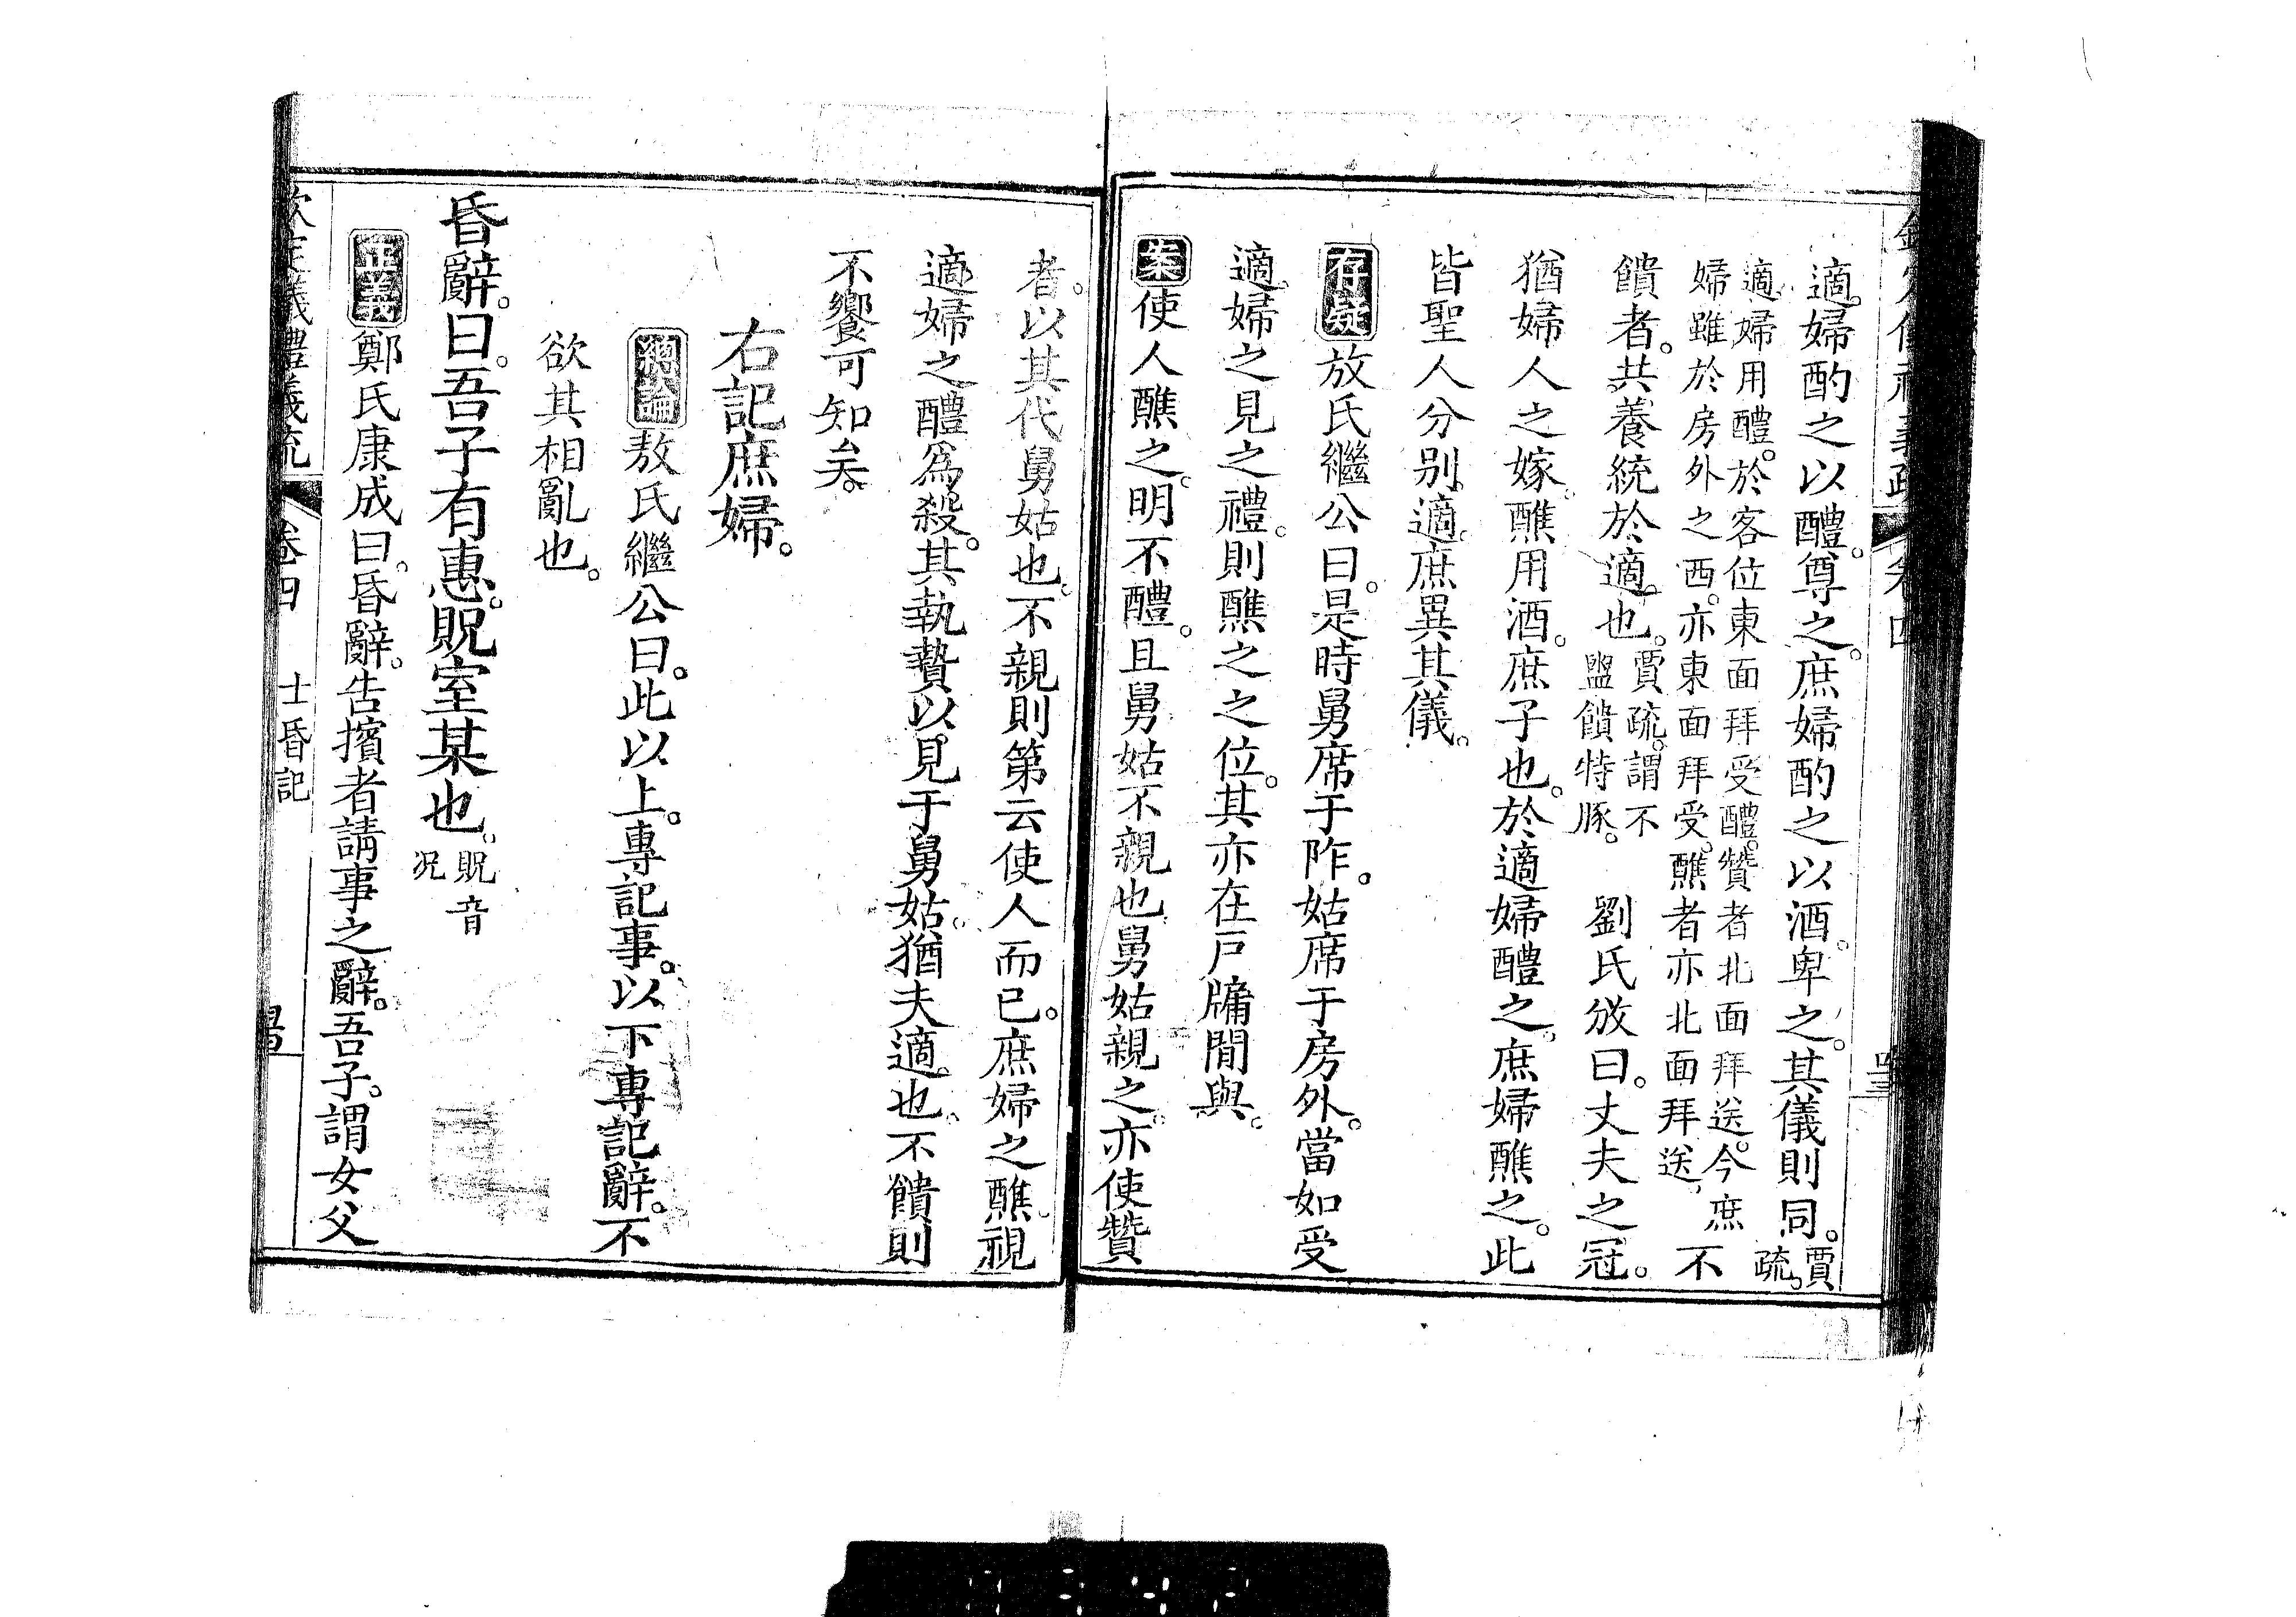 適。婦酌之以醴。尊之。庶婦酌之以酒。卑之。其儀則同。賈疏。
適。婦用醴。於客位東面拜受醴。贊者北面拜送。今庶
婦雖於房外之西。亦東面拜受。醮者亦北面拜送。不
饋者。共養統於適。也。賈疏。謂不盥饋特豚。劉氏敞曰。丈夫之冠。
猶婦人之嫁。醮用酒。庶子也。於適婦醴之。庶婦醮之。此
皆聖人分别。適。庶異其儀。
存疑敖氏繼公曰。是時舅席于阼。姑席于房外。當如受
適。婦之見之禮。則醮之之位。其亦在戸牖間與。
案使人醮之。明不醴。且舅姑不親也。舅姑親之。亦使贊
者。以其代舅姑也。不親則第云使人而已。庶婦之醮。視
適婦之醴爲殺。其執贄以見于舅姑。猶夫適。也。不饋則
不饗可知矣。
右記庶婦。
總論敖氏繼公曰。此以上。專記事。以下專記辭。不
欲其相亂也。
昏辭。曰。吾子有惠。貺室某也。貺音况
正義鄭氏康成曰。昏辭。告擯者請事之辭。吾子。謂女父
欽定儀禮義疏 卷四 士昏記